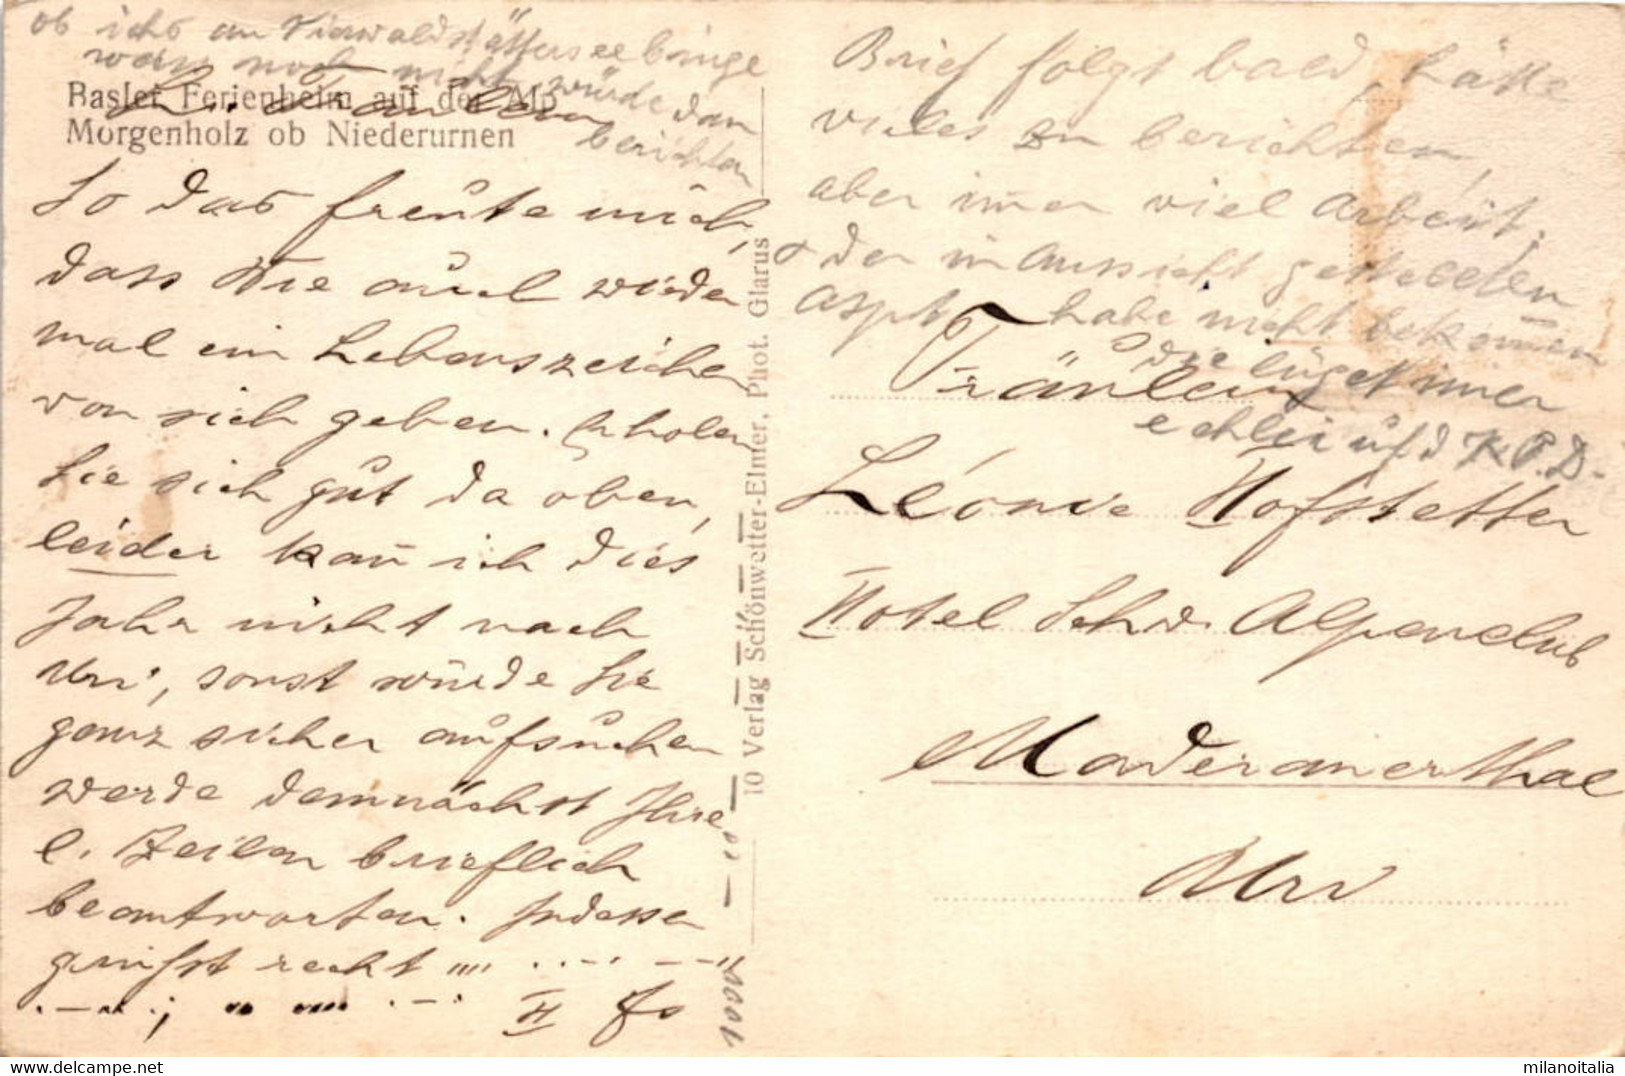 ob ichs an Vierwaldstättersee bringe
weis noch nicht würde dan
berichten
Basler Ferienheim auf der Alp
Morgenholz ob Niederurnen
L. Fräulein
So das freute mich,
dass Sie auch wieder
mal ein Lebenszeichen
von sich geben. Erholen
Sie sich gut da oben,
leider kan̄ ich dies
Jahr nicht nach
Uri, sonst würde Sie
ganz sicher aufsuchen
werde demnächst Ihre
l. Zeilen brieflich
beantworten. Indessen
grüsst recht
10 Verlag Schönwetter-Elmer, Phot. Glarus
Brief folgt bald, hätte
vieles zu berichten,
aber im̄er viel Arbeit,
& der in Aussicht gestellten
habe nicht bekom̄en
die lüget im̄er
echlei uf d K.P.D.
Fräulein
Léonie Hofstetter
Hotel Schw. Alpenclub
Maderanerthal
Uri
milanoitalia